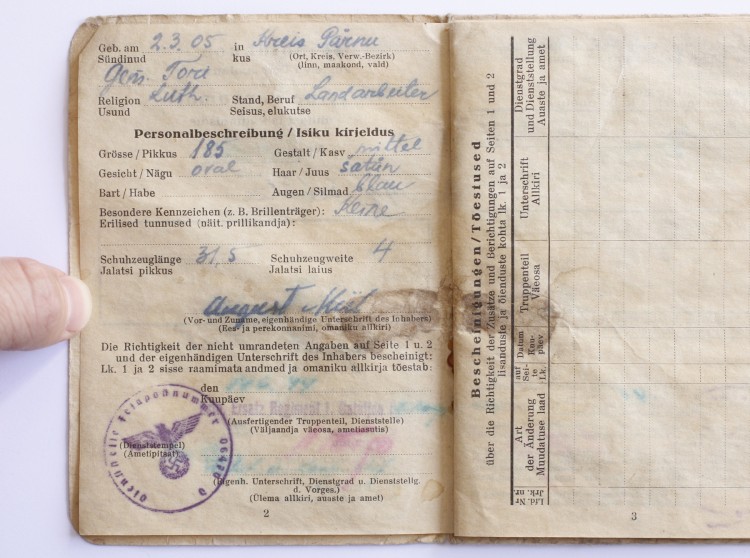 Geb. am 2.3.05 in Kreis Pärnu
Sündinud kus (Ort, Kreis, Verw.-Bezirk)
(linn, maakond, vald)
Gem. Tori
Religion Luth. Stand, Beruf Landarbeiter
Usund Seisus, elukutse
Personalbeschreibung / Isiku kirjeldus
Grösse / Pikkus 185 Gestalt / Kasv mittel
Gesicht / Nägu oval Haar / Juus
Bart / Habe Augen / Silmad blau
Besondere Kennzeichen (z. B. Brillenträger): Keine
Erilised tunnused (näit. prillikandja):
Schuhzeuglänge 31,5 Schuhzeugweite 4
Jalatsi pikkus Jalatsi laius
August
(Vor- und Zuname, eigenhändige Unterschrift des Inhabers)
(Ees- ja perekonnanimi, omaniku allkiri)
Die Richtigkeit der nicht umrandeten Angaben auf Seite 1 u. 2
und der eigenhändigen Unterschrift des Inhabers bescheinigt:
Lk. 1 ja 2 sisse raamimata andmed ja omaniku allkirja tõestab:
den
Kuupäev
(Ausfertigender Truppenteil, Dienststelle)
(Väljaandja väeosa, ameliasutis)
Dienststelle Feldpostnummer
(Dienststempel)
(Ametipitsat)
(Eigenh. Unterschrift, Dienstgrad u. Dienststellg.
d. Vorges.)
(Ülema allkiri, auaste ja amet)
2
Bescheinigungen / Tõestused
über die Richtigkeit der Zusätze und Berichtigungen auf Seiten 1 und 2
lisanduste ja õienduste kohta lk. 1 ja 2
Lfd. Nr
Jrk. nr.
Art
der Änderung
Muudatuse laad
auf
Sei-
te
Lk.
Datum
Kuu-
päev
Truppenteil
Väeosa
Unterschrift
Allkiri
Dienstgrad
und Dienststellung
Auaste ja amet
3